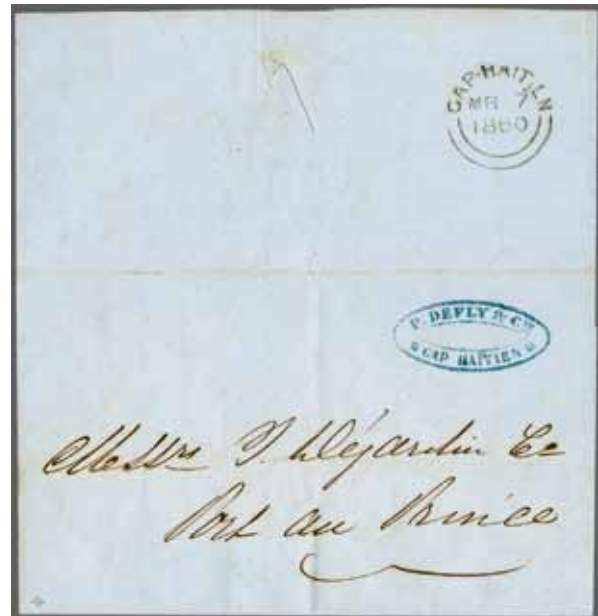 CAP-HAITIEN
MR 7
1860
P. DEFLY & Cie
CAP HAITIEN
Messrs P. Déjardin Co
Port au Prince